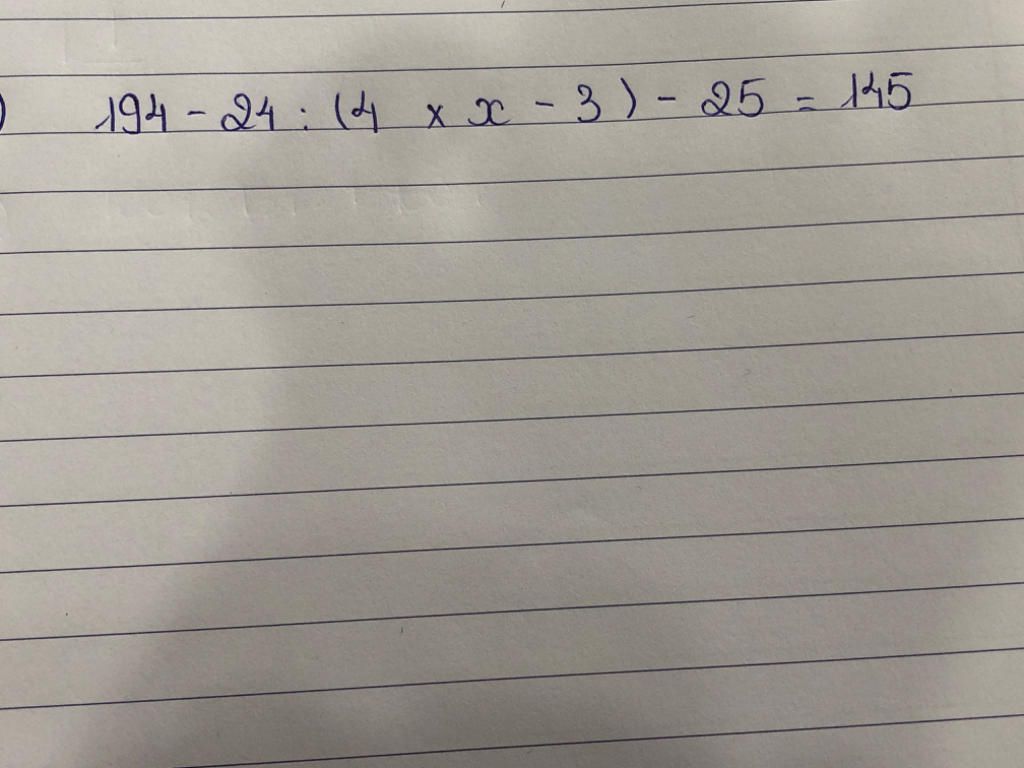 ) 194 - 24 : (4 x x - 3) - 25 = 145